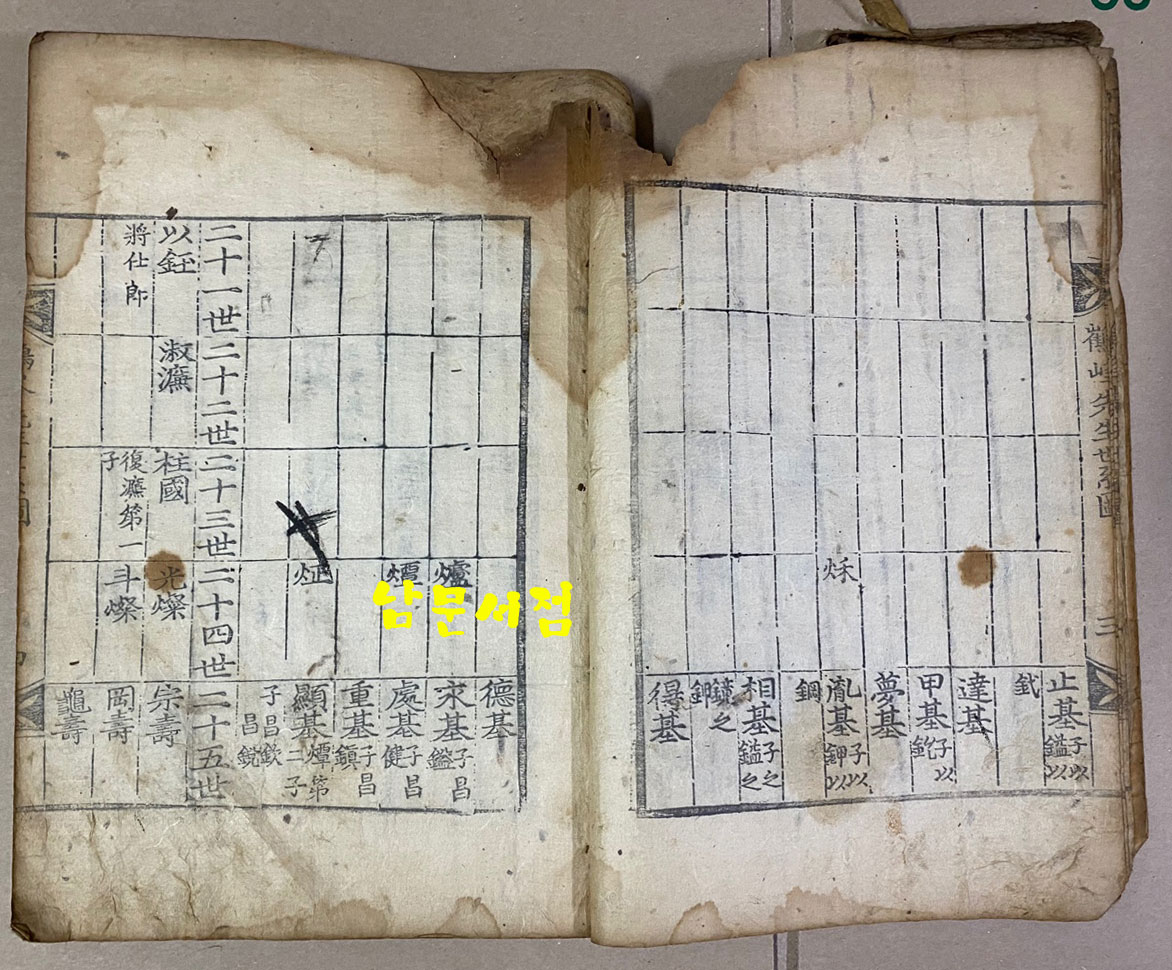 鶴峰先生世系圖
三
止基
子以
鎰以
鉽
達基
甲基
子以
夢基
秌
胤基
子以
鉀以
鋼
相基
子之
鎰之
鏡之
得基
德基
爐
求基
子昌
鎰
燂
處基
子昌
健
重基
子昌
鎭
炡
顯基
燂第
二子
子昌欽
昌銳
二十一世
二十二世
二十三世
二十四世
二十五世
以鉦
淑濂
柱國
光燦
宗壽
將仕郎
復濂第一
子
斗燦
岡壽
壽
남문서점